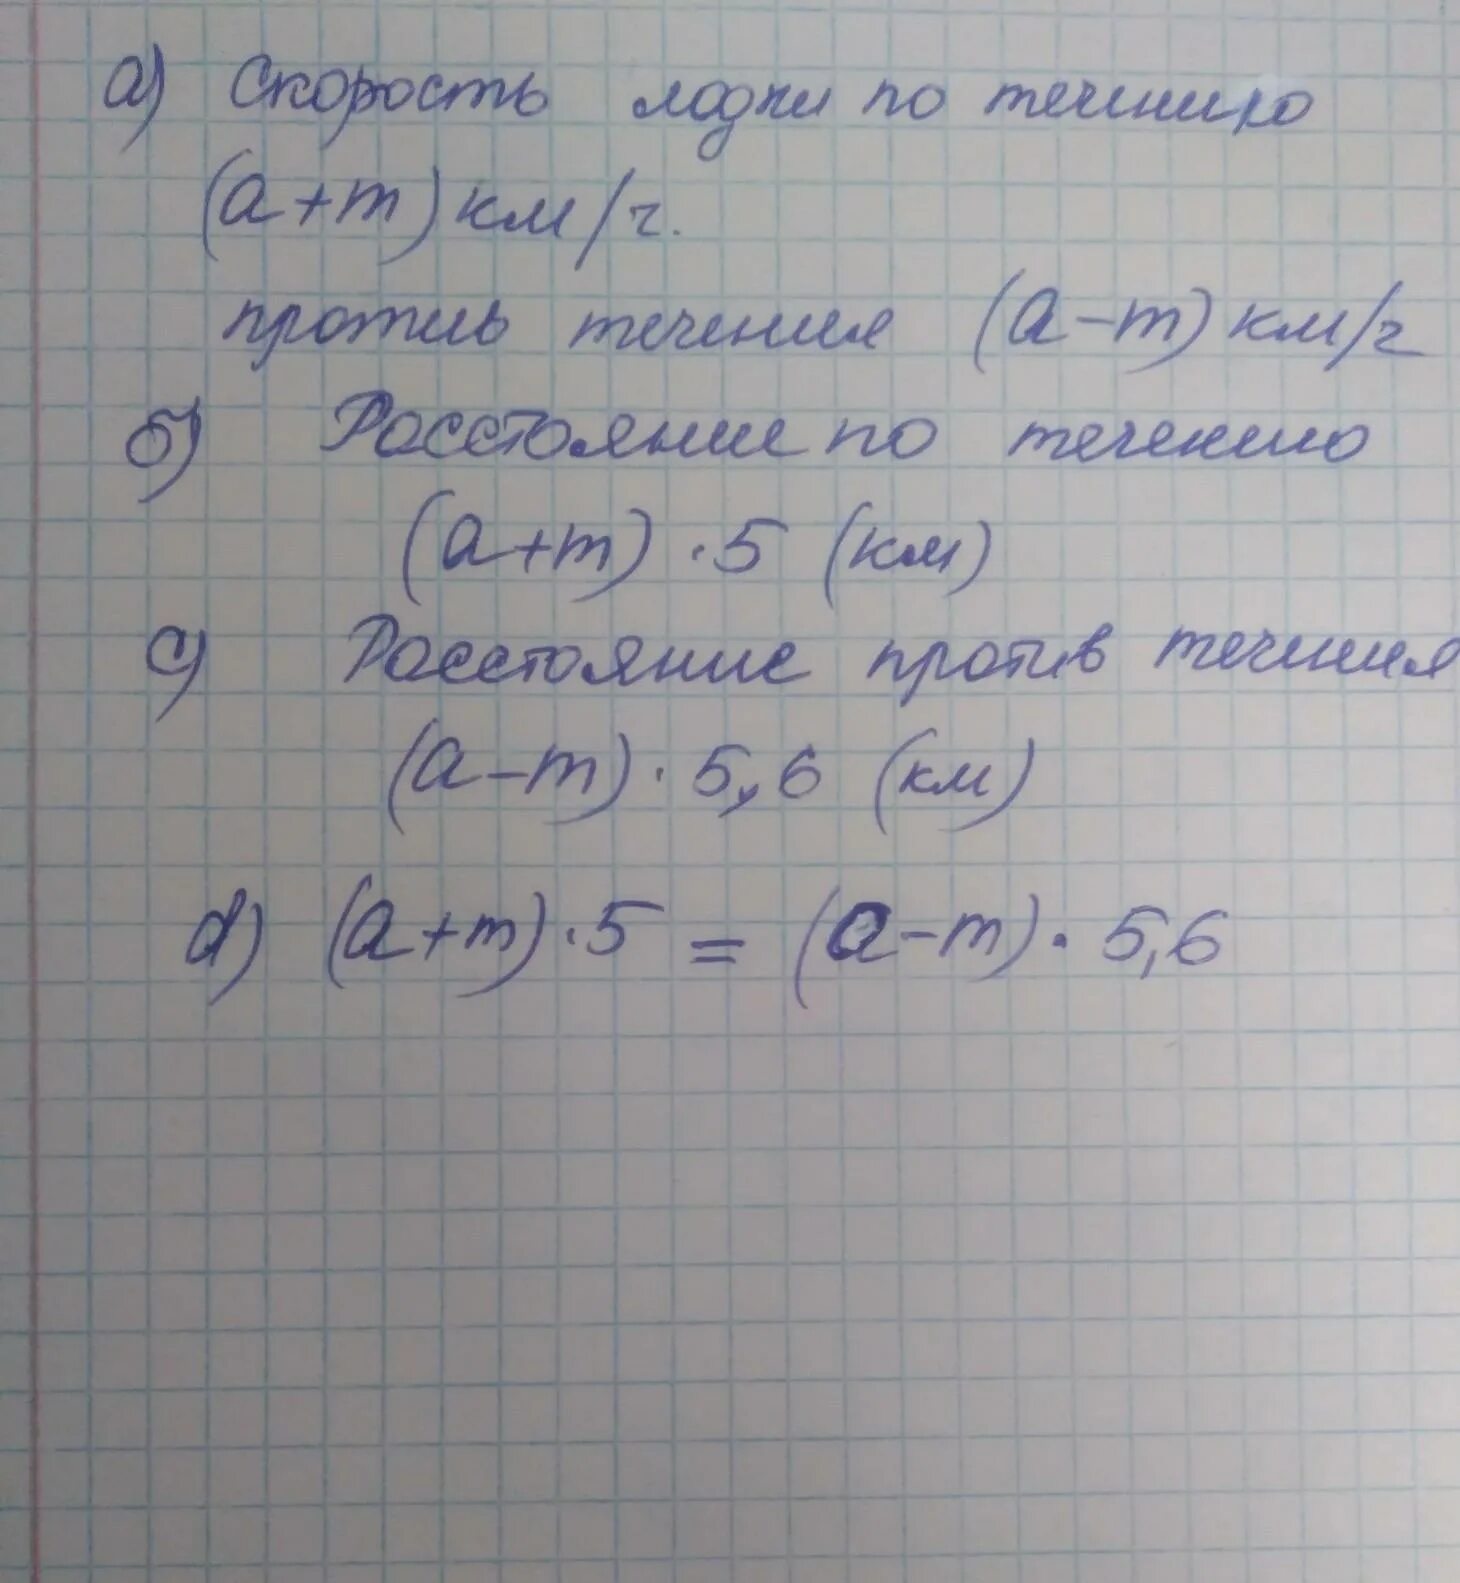 а) Скорость лодки по течению
(a+m) км/ч.
против течения (a-m) км/ч
б) Расстояние по течению
(a+m)·5 (км)
с) Расстояние против течения
(a-m)·5,6 (км)
d) (a+m)·5 = (a-m)·5,6